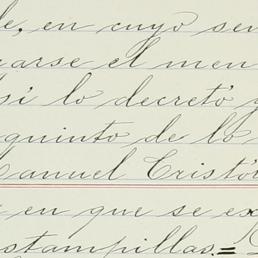 le, en cuyo sen
carse el men
si lo decretó y
quinto de lo
Manuel Cristó
y en que se ex
stampillas.=